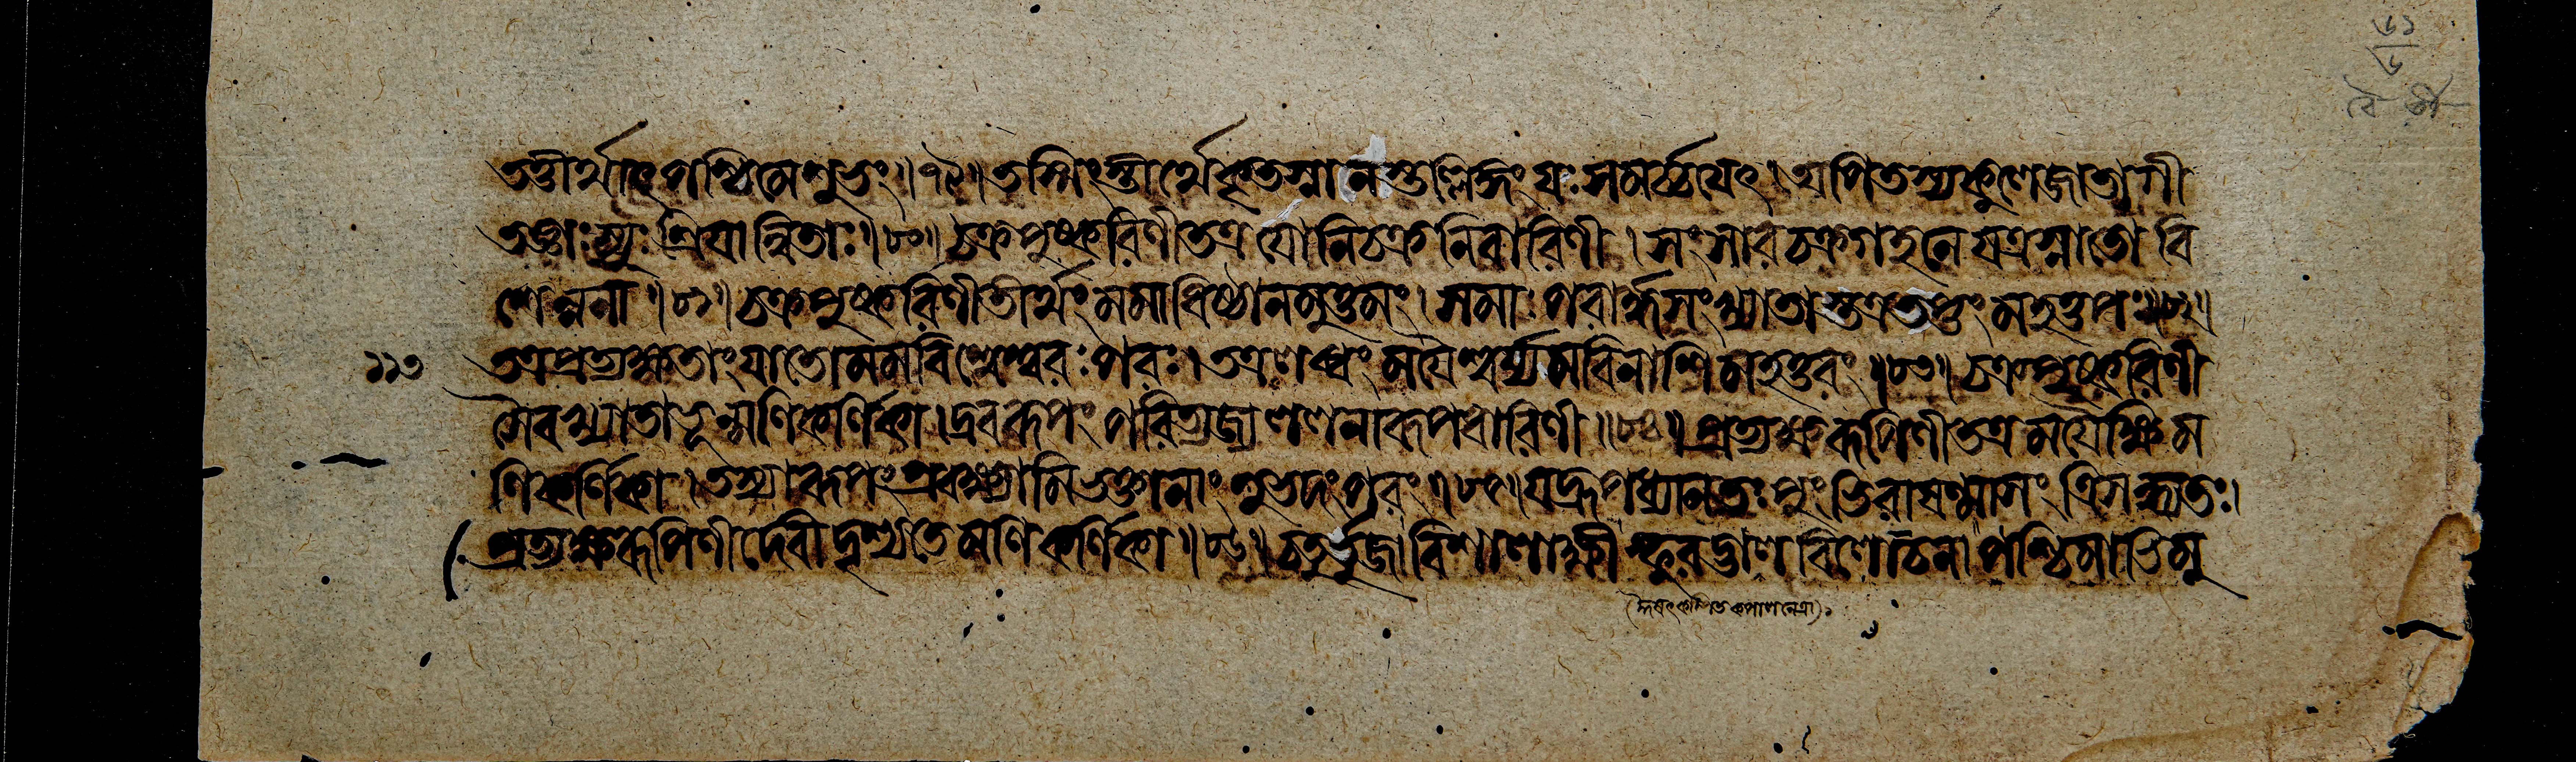 ৬১
৬
তত্তীর্থাৎ পশ্চিমে শুভং ॥ ৭৯ ॥ তস্মিংস্তীর্থে কৃতস্নানস্তল্লিঙ্গং যঃ সমর্চ্চয়েৎ । অপি তস্য কুলে জাতা গী
তজ্ঞাঃ স্যুঃ শ্রিয়ান্বিতাঃ ॥ ৮০ ॥ চক্রপুষ্করিণী তত্র যোনিচক্রনিবারিণী । সংসারচক্রগহনে যত্র স্নাতো বি
শেন্ননা ॥ ৮১ ॥ চক্রপুষ্করিণীতীর্থং মমাধিষ্ঠানমুত্তমং । সমাঃ পরার্দ্ধসংখ্যাতাস্তত্র তপ্তং মহত্তপঃ ॥ ৮২ ॥
১১৩ তত্র প্রত্যক্ষতাং যাতো মম বিশ্বেশ্বরঃ পরঃ । তত্র লব্ধং ময়ৈশ্বর্য্যমবিনাশি মহত্তরং ॥ ৮৩ ॥ চক্রপুষ্করিণী
সৈব খ্যাতাভূন্মণিকর্ণিকা । দ্রবরূপং পরিত্যজ্য ললনারূপধারিণী ॥ ৮৪ ॥ প্রত্যক্ষরূপিণী তত্র ময়ৈক্ষি ম
ণিকর্ণিকা । তস্যা রূপং প্রবক্ষ্যামি ভক্তানাং শুভদং পরং ॥ ৮৫ ॥ যদ্রূপধ্যানতঃ পুংভিরাষণ্মাসং ত্রিসন্ধ্যতঃ ।
প্রত্যক্ষরূপিণী দেবী দৃশ্যতে মণিকর্ণিকা ॥ ৮৬ ॥ চতুর্ভুজা বিশালাক্ষী স্ফুরদ্ভালবিলোচনা পশ্চিমাভিমু